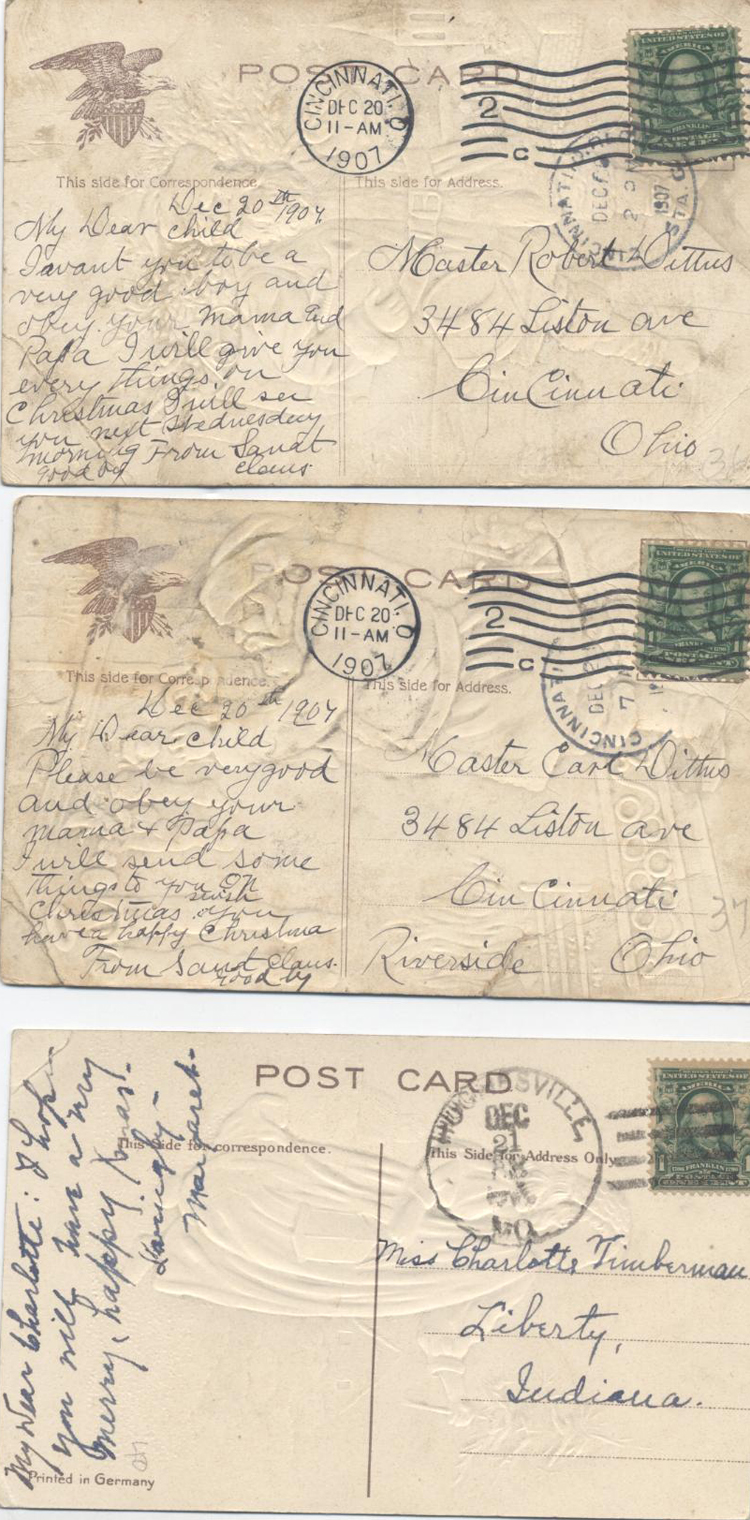 POST CARD
CINCINNATI, O
DEC 20
11-AM
1907
2
C
UNITED STATES OF
AMERICA
This side for Correspondence.
This side for Address.
CINCINNATI
DEC
2
1907
STA.
Dec 20th 1907
My Dear child
I want you to be a
very good boy and
obey your Mama and
Papa I will give you
every things on
Christmas I will see
you next Wednesday
morning From Sanat
good by claus
Master Robert Dittus
3484 Liston ave
Cincinnati
Ohio
POST CARD
CINCINNATI, O
DEC 20
11-AM
1907
2
C
AMERICA
This side for Correspondence.
This side for Address.
CINCINNATI
DEC
7
Dec 20th 1907
My Dear child
Please be very good
and obey your
mama & Papa
I will send some
things to you on
Christmas wish you
have a happy Christma
From Sanat Claus.
good by
Master Carl Dittus
3484 Liston ave
Cincinnati
Riverside Ohio
37
POST CARD
This side for correspondence.
This Side for Address Only
DEC
21
MO.
UNITED STATES OF
AMERICA
POSTAGE
ONE CENT
My Dear Charlotte: I hope
you will have a very
merry, happy Xmas!
Lovingly-
Margaret.
Miss Charlotte Timberman
Liberty,
Indiana.
Printed in Germany